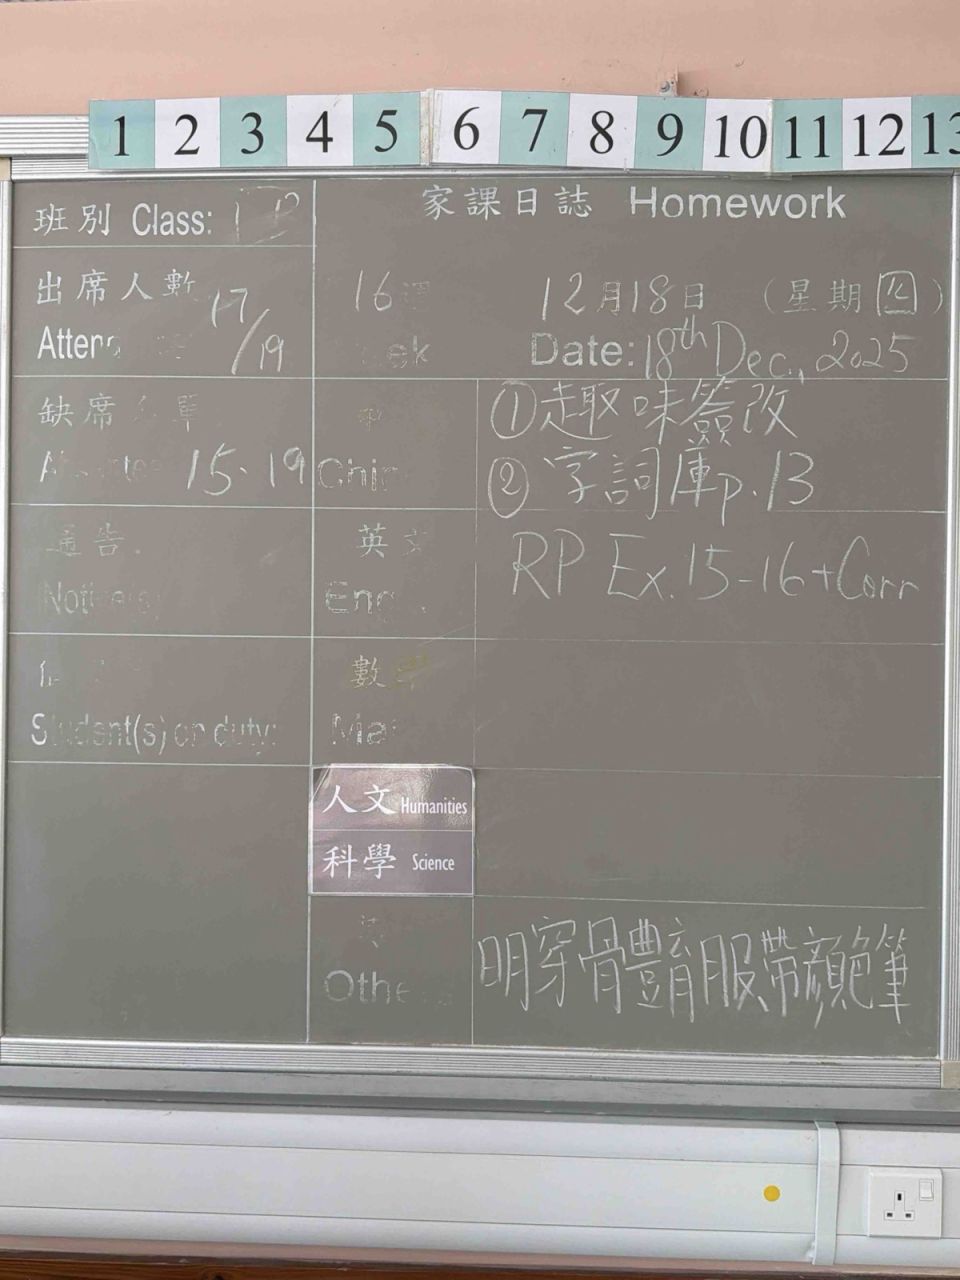 1 2 3 4 5 6 7 8 9 10 11 12 13
家課日誌 Homework
班別 Class:
出席人數 17/19
16 12月18日 (星期四)
Date: 18th Dec., 2025
缺席 單
15. 19
中
①趣味簽改
②字詞庫p.13
通告
英文
RP Ex. 15-16+Corr
數學
Student(s) on duty:
人文 Humanities
科學 Science
明穿骨體育服帶顏色筆